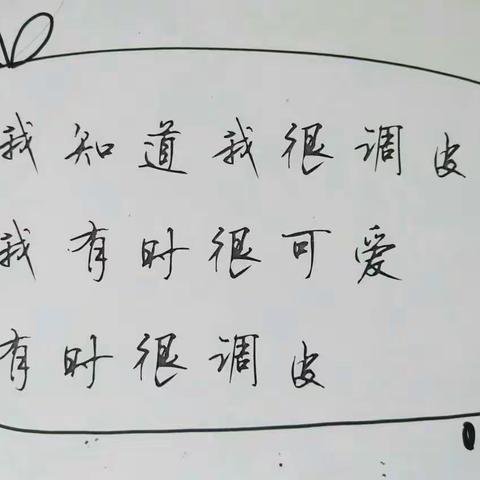 我知道我很调皮
我有时很可爱
有时很调皮